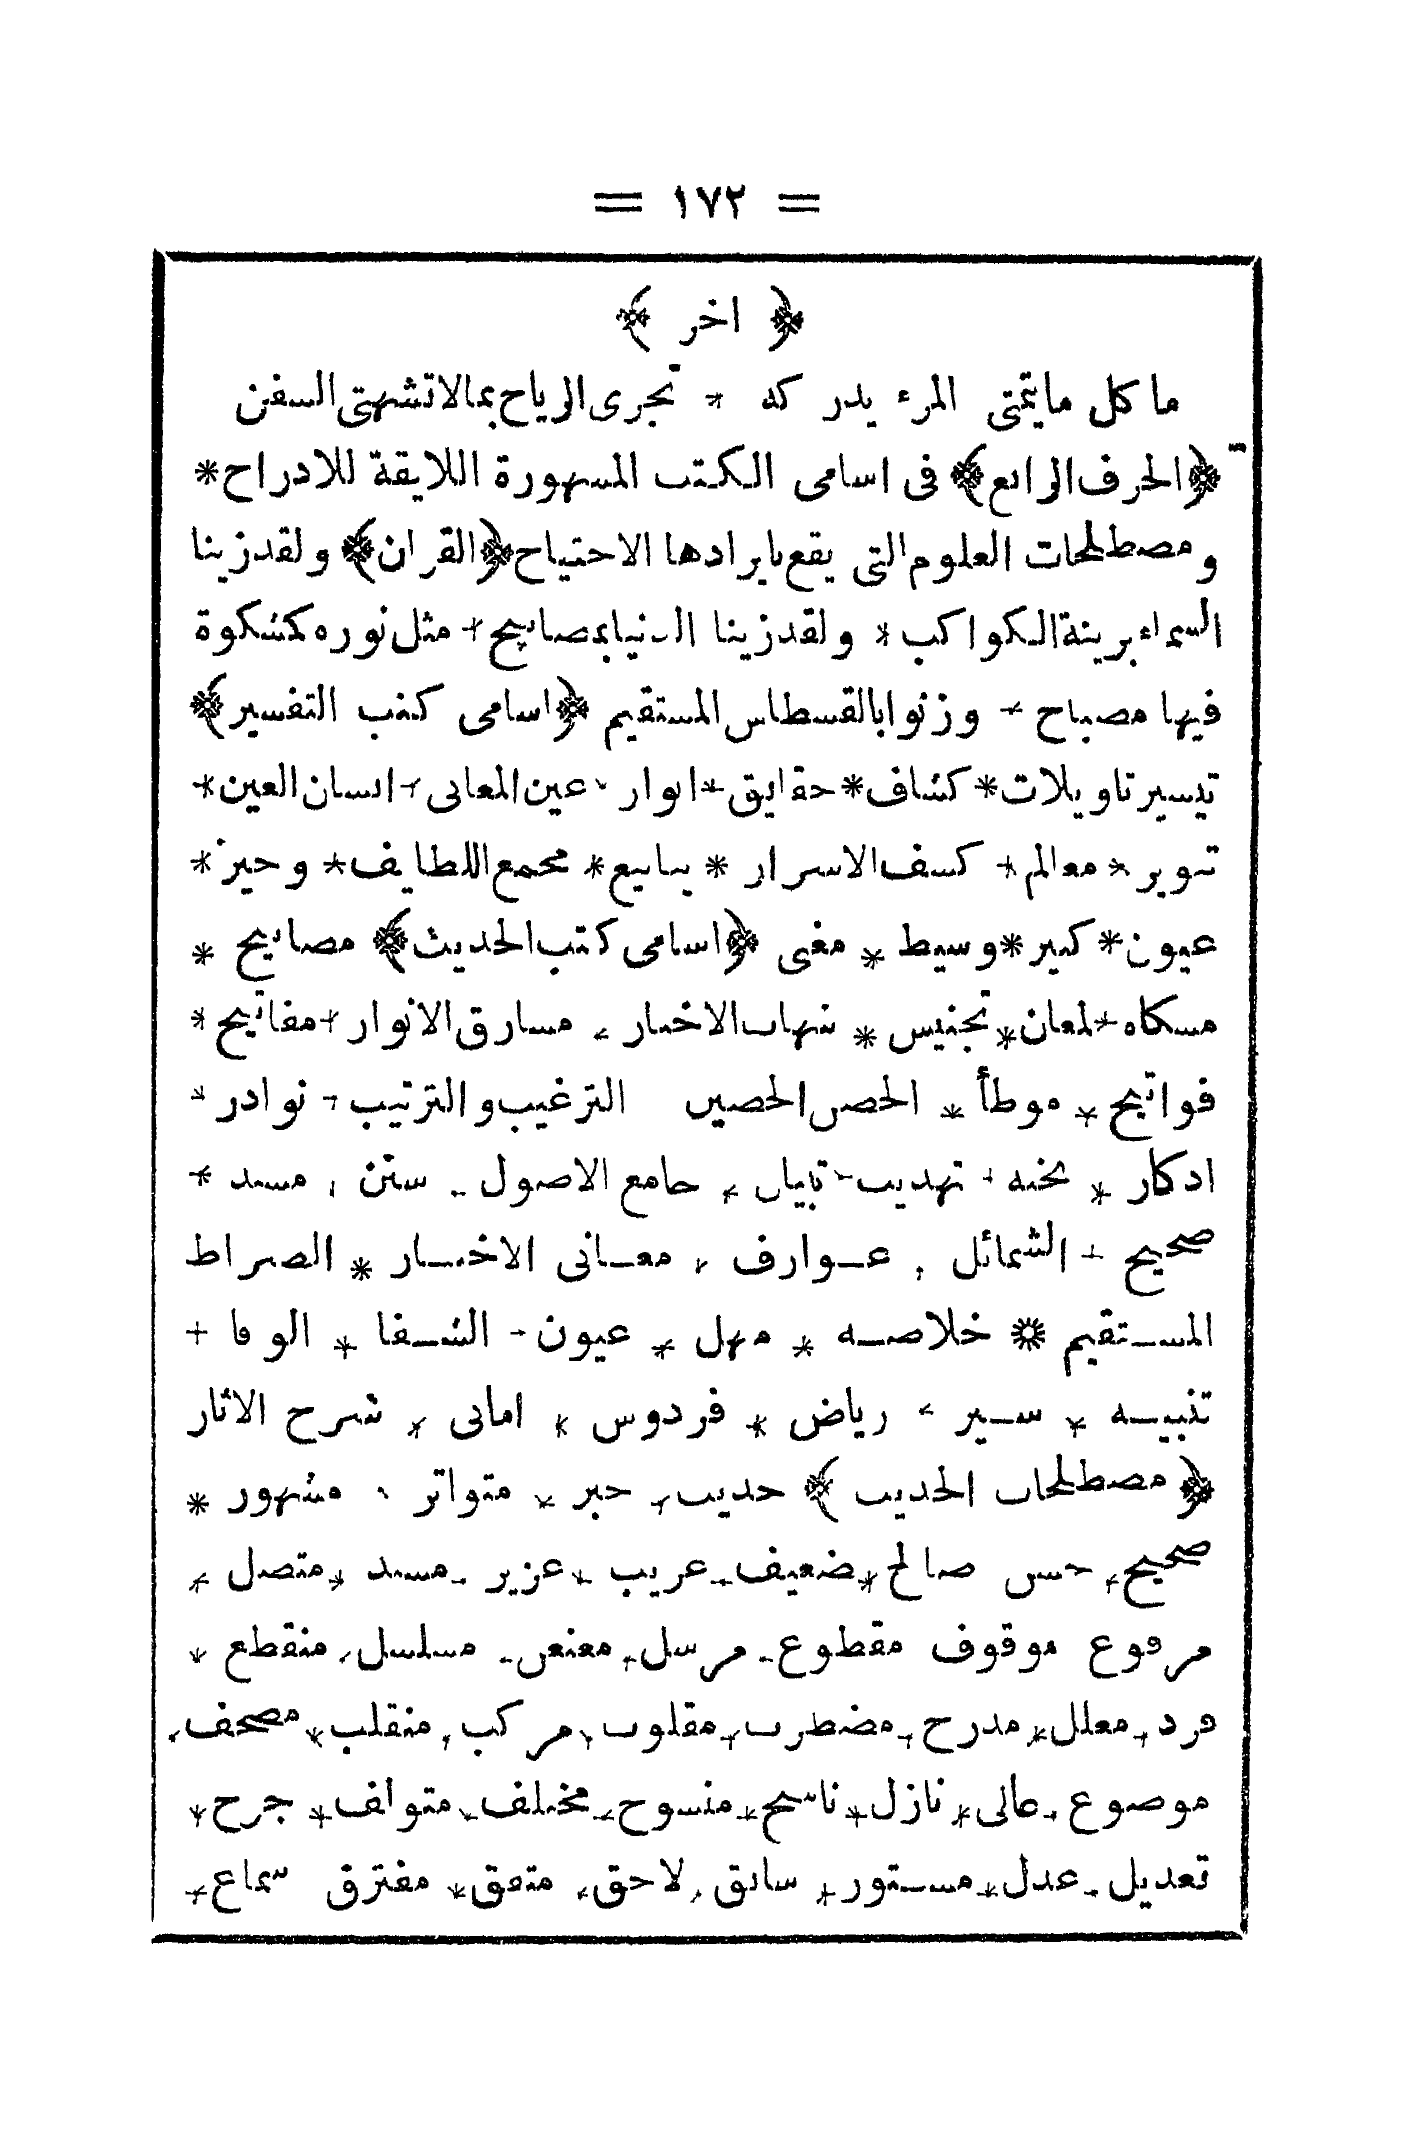 = ١٧٢ =
﴿ اخر ﴾
ما كل ما يتمنى المرء يدركه * تجرى الرياح بما لا تشتهى السفن
﴿ الحرف الرابع ﴾ فى اسامى الكتب المشهورة اللايقة للادراج *
ومصطلحات العلوم التى يقع بايرادها الاحتياج ﴿ القران ﴾ ولقد زينا
السماء بزينة الكواكب * ولقد زينا السماء الدنيا بمصابيح * مثل نوره كمشكوة
فيها مصباح * وزنوا بالقسطاس المستقيم ﴿ اسامى كتب التفسير ﴾
تيسير تاويلات * كشاف * حقايق * انوار * عين المعانى * انسان العين *
تنوير * معالم * كشف الاسرار * ينابيع * مجمع اللطايف * وجيز *
عيون * كبير * وسيط * مغنى ﴿ اسامى كتب الحديث ﴾ مصابيح *
مشكاه * لمعان * تجنيس * شهاب الاخبار * مشارق الانوار * مفاتيح *
فواتيح * موطأ * الحصن الحصين الترغيب والترتيب * نوادر *
اذكار * نخبه * تهذيب * تبيان * جامع الاصول * سنن * مسند *
صحيح * الشمائل * عوارف * معانى الاخبار * الصراط
المستقيم * خلاصه * مهل * عيون * الشفا * الوفا *
تنبيه * سير * رياض * فردوس * امانى * شرح الاثار
﴿ مصطلحات الحديث ﴾ حديث * خبر * متواتر * مشهور *
صحيح * حسن صالح * ضعيف * غريب * عزيز * مسند * متصل *
مرفوع موقوف مقطوع * مرسل * معنعن * مسلسل * منقطع *
فرد * معلل * مدرج * مضطرب * مقلوب * مركب * منقلب * مصحف *
موضوع * عالى * نازل * ناسخ * منسوخ * مختلف * متوالف * جرح *
تعديل * عدل * مستور * سابق * لاحق * متفق * مفترق سماع *